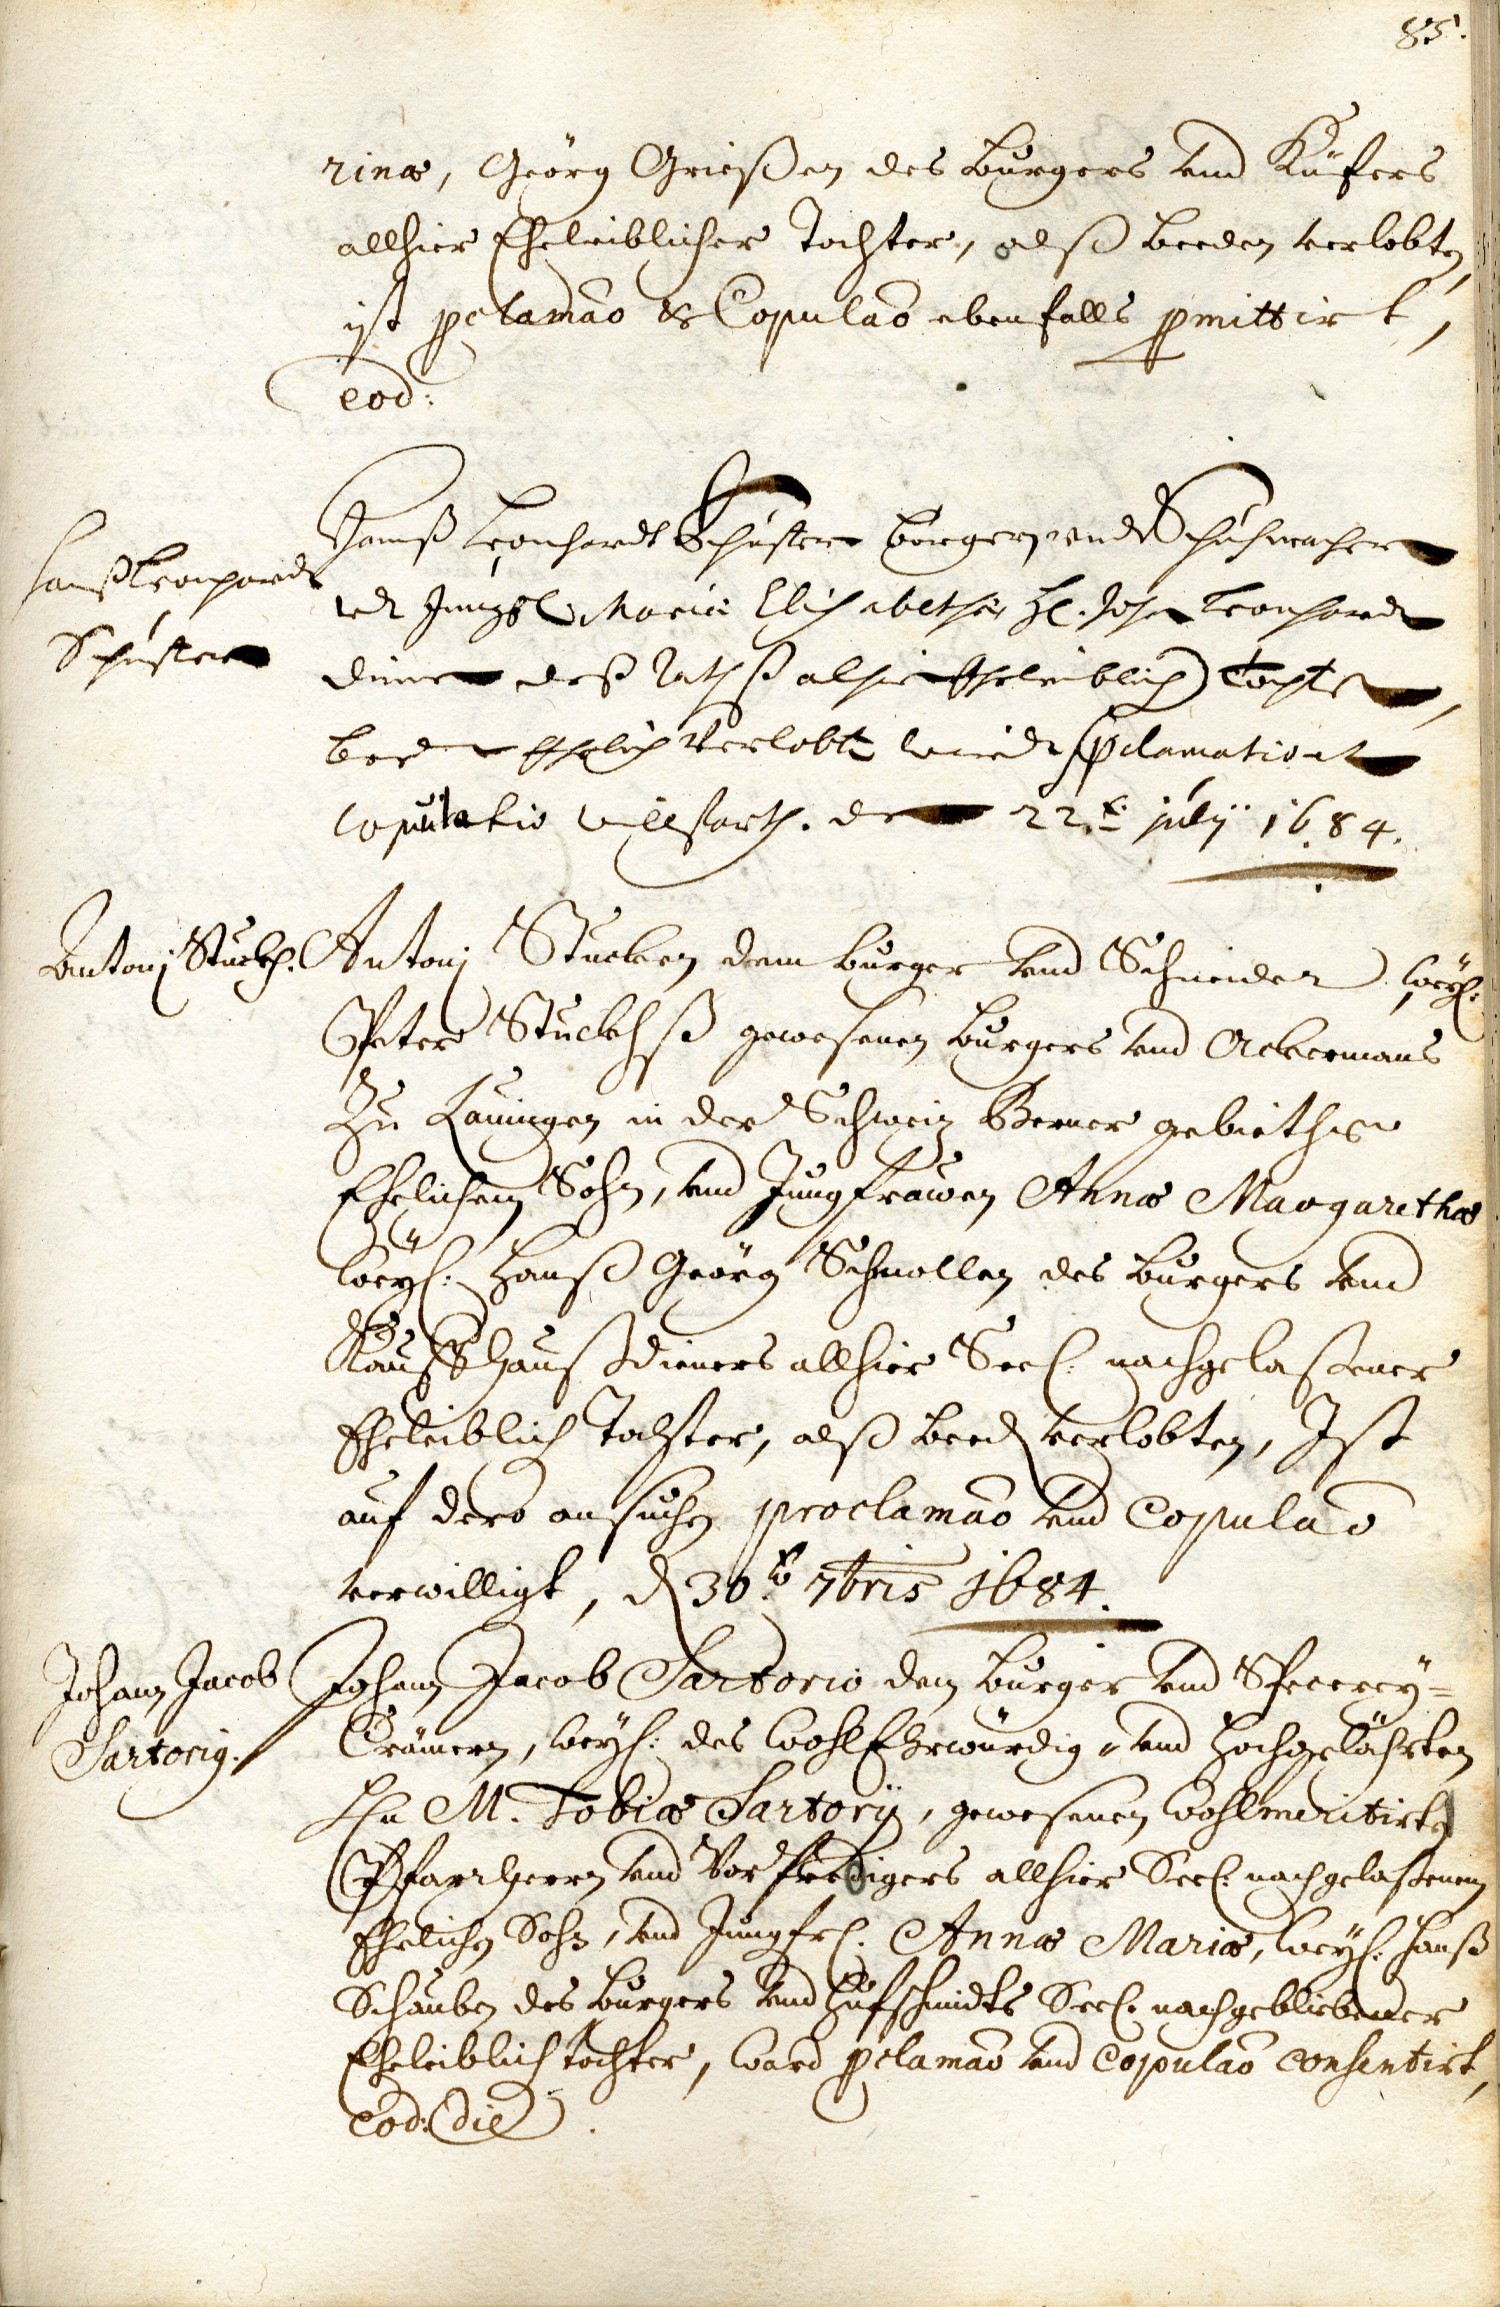 85.
rinæ, Geörg Grießen des burgers vnd Küfers
allhier Eheleiblicher Tochter, alß beeden verlobten,
ist pclamão & Copulaõ ebenfalls pmittirt,
eod:
Hanß Leonhardt
Schuster
Hanß Leonhardt Schuster burgern undt Schuhmacher
vdt Jungf. Maria Elisabetha H. Joh. Leonhardt
deß Raths alhie Eheleiblich Tochter,
beede Ehelich Verlobte wird pclamatio et
copulatio willfarth. den 22.t july 1684.
Antonj Stuckh.
Antonj Stucken dem burger vnd Schneider, weyl.
Peter Stuckhß gewesenen burgers vnd Ackermans
Zu Lauingen in der Schweiz Berner gebieths
Ehelichem Sohn, vnd Jungfrawen Annæ Margarethæ
weyl: Hanß Geörg Schmollen des burgers vnd
Kauffhaußdieners allhier Seel. nachgelaßener
Eheleiblich Tochter, alß beed verlobten, Ist
auf dero ansuchen proclamaõ vnd Copulaõ
verwilligt, d 30.t 7bris 1684.
Johann Jacob
Sartorig.
Johann Jacob Sartorio dem burger vnd Specerey=
Crämern, weyl: des WohlEhrwürdig vnd Hochgelährten
Hn M. Tobiæ Sartorij, gewesenen wohlmeritirten
Pfarrherrn vnd Vorpredigers allhier Seel. nachgelaßenem
Ehelichen Sohn, vnd Jungfr. Annæ Mariæ, weyl. Hanß
Schauben des burgers vnd Hufschmidts Seel. nachgebliebener
Eheleiblich tochter, ward pclamaõ vnd Copulaõ consentirt,
Eod: die.